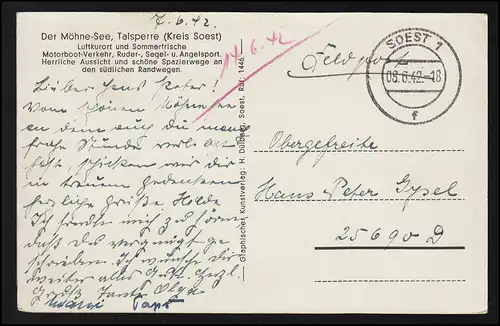 7.6.42.
Der Möhne-See, Talsperre (Kreis Soest)
Luftkurort und Sommerfrische
Motorboot-Verkehr, Ruder-, Segel- u. Angelsport.
Herrliche Aussicht und schöne Spazierwege an
den südlichen Randwegen.
14.6.42
Lieber Hans Peter!
Vom schönen Möhnesee
an dem auch du manche
frohe Stunde verlebt
hast, schicken wir dir
in treuem Gedenken
herzliche Grüße Hilde
Ich freute mich zu hören
daß du vergnügt ge
schrieben. Ich wünsche dir
weiter alles Gute. Herzl.
Gruß Tante Olga
Graphischer Kunstverlag: H. Soest, 1446
Feldpost
SOEST 1
08.6.42.-18
f
Obergefreite
Hans Peter Gysel
25690 D